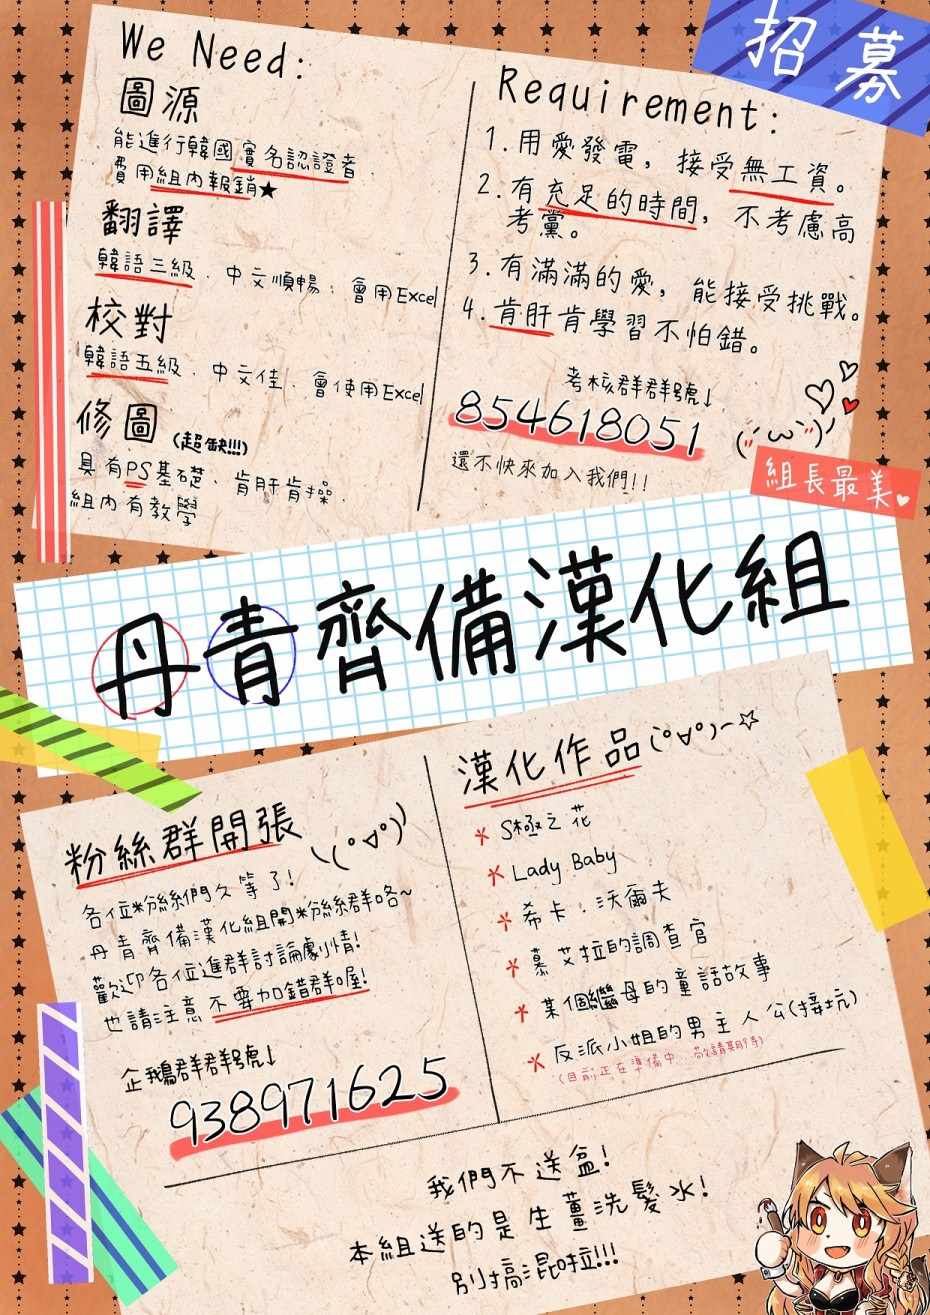 招募
We Need:
圖源
能進行韓國實名認證者、
費用組內報銷★
翻譯
韓語三級、中文順暢、會用Excel
校對
韓語五級、中文佳、會使用Excel
修圖(超缺!!!)
具有PS基礎、肯肝肯操、
組內有教學
Requirement:
1.用愛發電,接受無工資。
2.有充足的時間,不考慮高
考黨。
3.有滿滿的愛,能接受挑戰。
4.肯肝肯學習不怕錯。
考核群群號↓
854618051
還不快來加入我們!!
組長最美
丹青齊備漢化組
粉絲群開張
各位粉絲們久等了!
丹青齊備漢化組開粉絲群咯~
歡迎各位進群討論劇情!
也請注意不要加錯群喔!
企鵝群群號↓
938971625
漢化作品
S極之花
Lady Baby
希卡·沃爾夫
慕艾拉的調查官
某個繼母的童話故事
反派小姐的男主人公(接坑)
(目前正在準備中、敬請期待)
我們不送盒!
本組送的是生薑洗髮水!
別搞混啦!!!